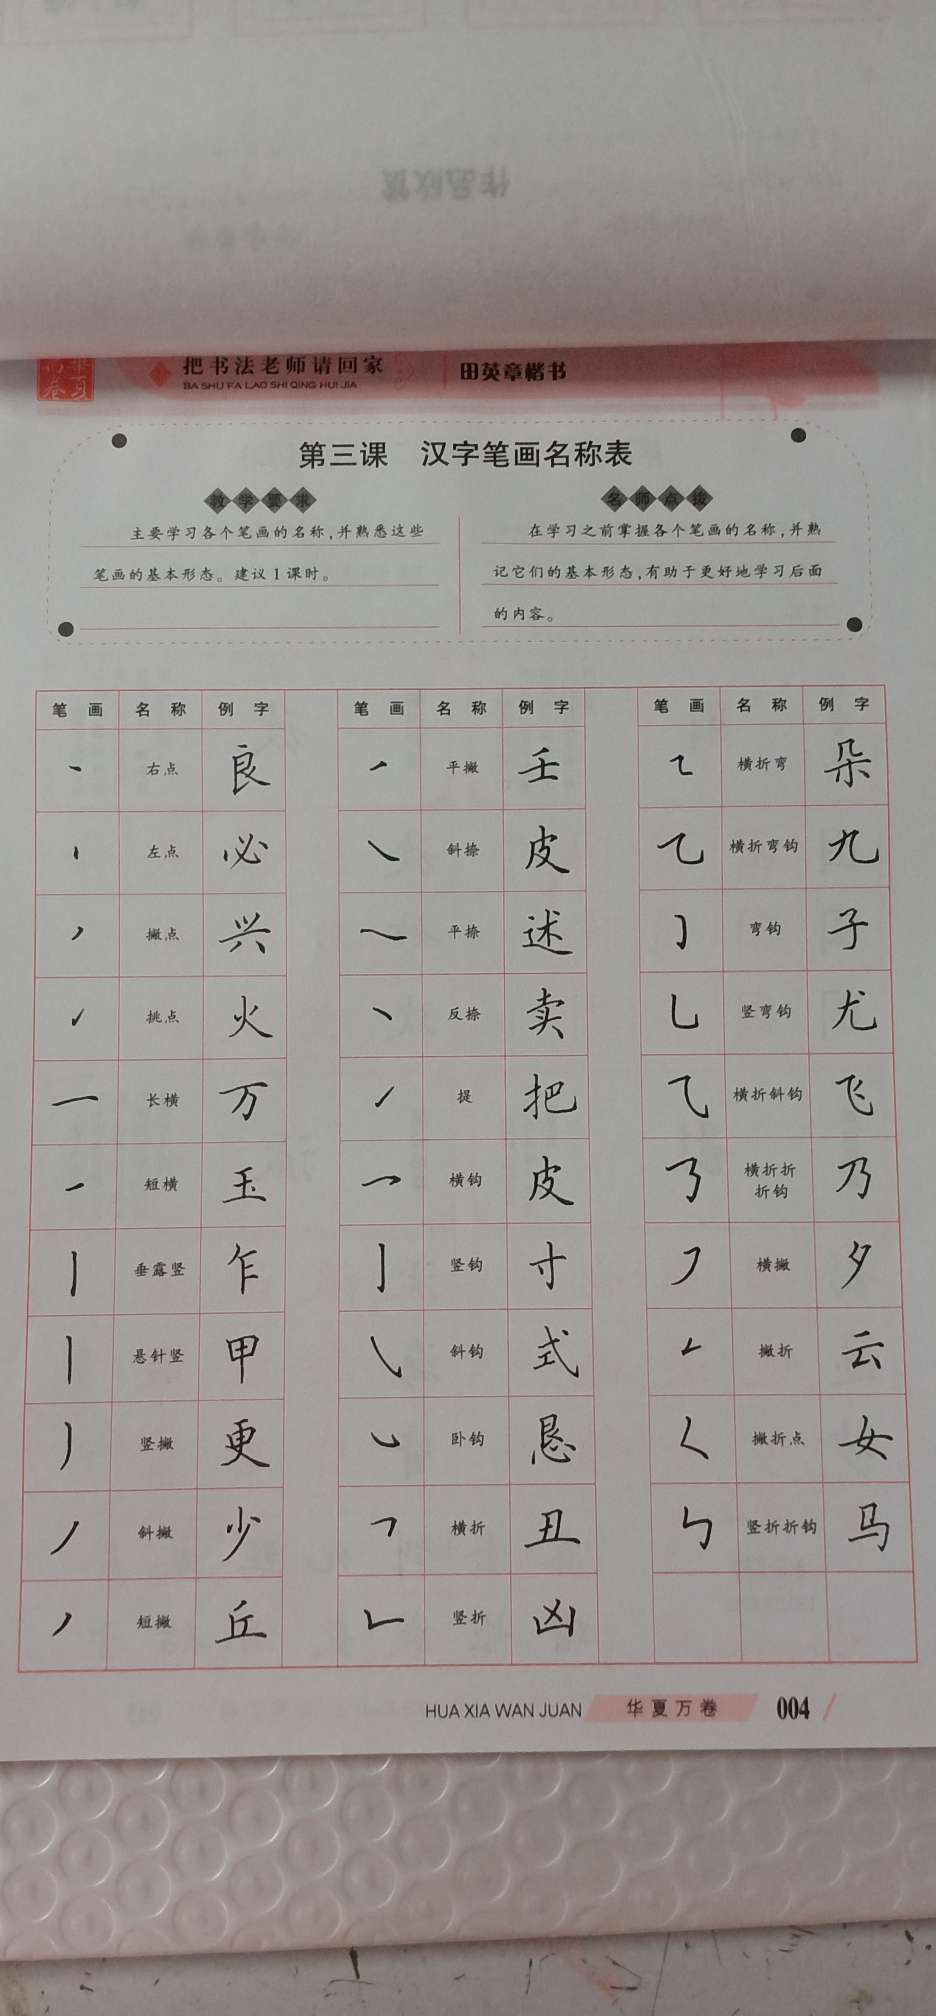 把书法老师请回家
BA SHU FA LAO SHI QING HUI JIA
田英章楷书
第三课 汉字笔画名称表
教学要求
主要学习各个笔画的名称,并熟悉这些
笔画的基本形态。建议1课时。
名师点拨
在学习之前掌握各个笔画的名称,并熟
记它们的基本形态,有助于更好地学习后面
的内容。
笔画 名称 例字 笔画 名称 例字 笔画 名称 例字
右点 良 平撇 壬 横折弯 朵
左点 必 斜捺 皮 横折弯钩 九
撇点 兴 平捺 述 弯钩 子
挑点 火 反捺 卖 竖弯钩 尤
长横 万 提 把 横折斜钩 飞
短横 玉 横钩 皮 横折折折钩 乃
垂露竖 乍 竖钩 寸 横撇 夕
悬针竖 甲 斜钩 式 撇折 云
竖撇 更 卧钩 恳 撇折点 女
斜撇 少 横折 丑 竖折折钩 马
短撇 丘 竖折 凶
HUA XIA WAN JUAN 华夏万卷 004